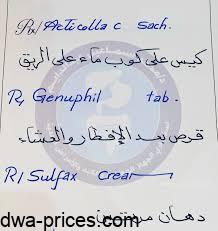 R/ Acticolla c sach.
كيس على كوب ماء على الريق
R/ Genuphil tab.
قرص بعد الإفطار والعشاء
R/ Sulfax Cream
دهان مرتين
dwa-prices.com